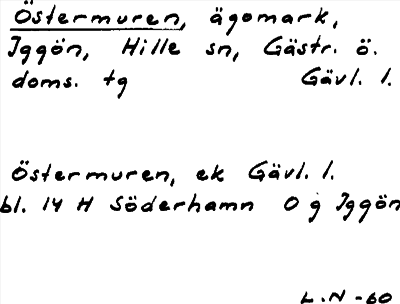 Östermuren, ägomark,
Iggön, Hille sn, Gästr. ö.
doms. tg Gävl. l.
Östermuren, ek Gävl. l.
bl. 14 H Söderhamn O g Iggön
L.N -60